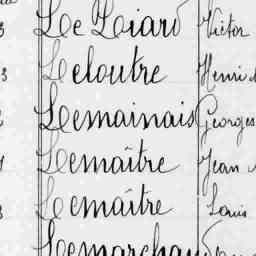 Le Liard Victor
3 Leloutre Henri
Lemainais Georges
Lemaître Jean
Lemaître Louis
Lemarchand